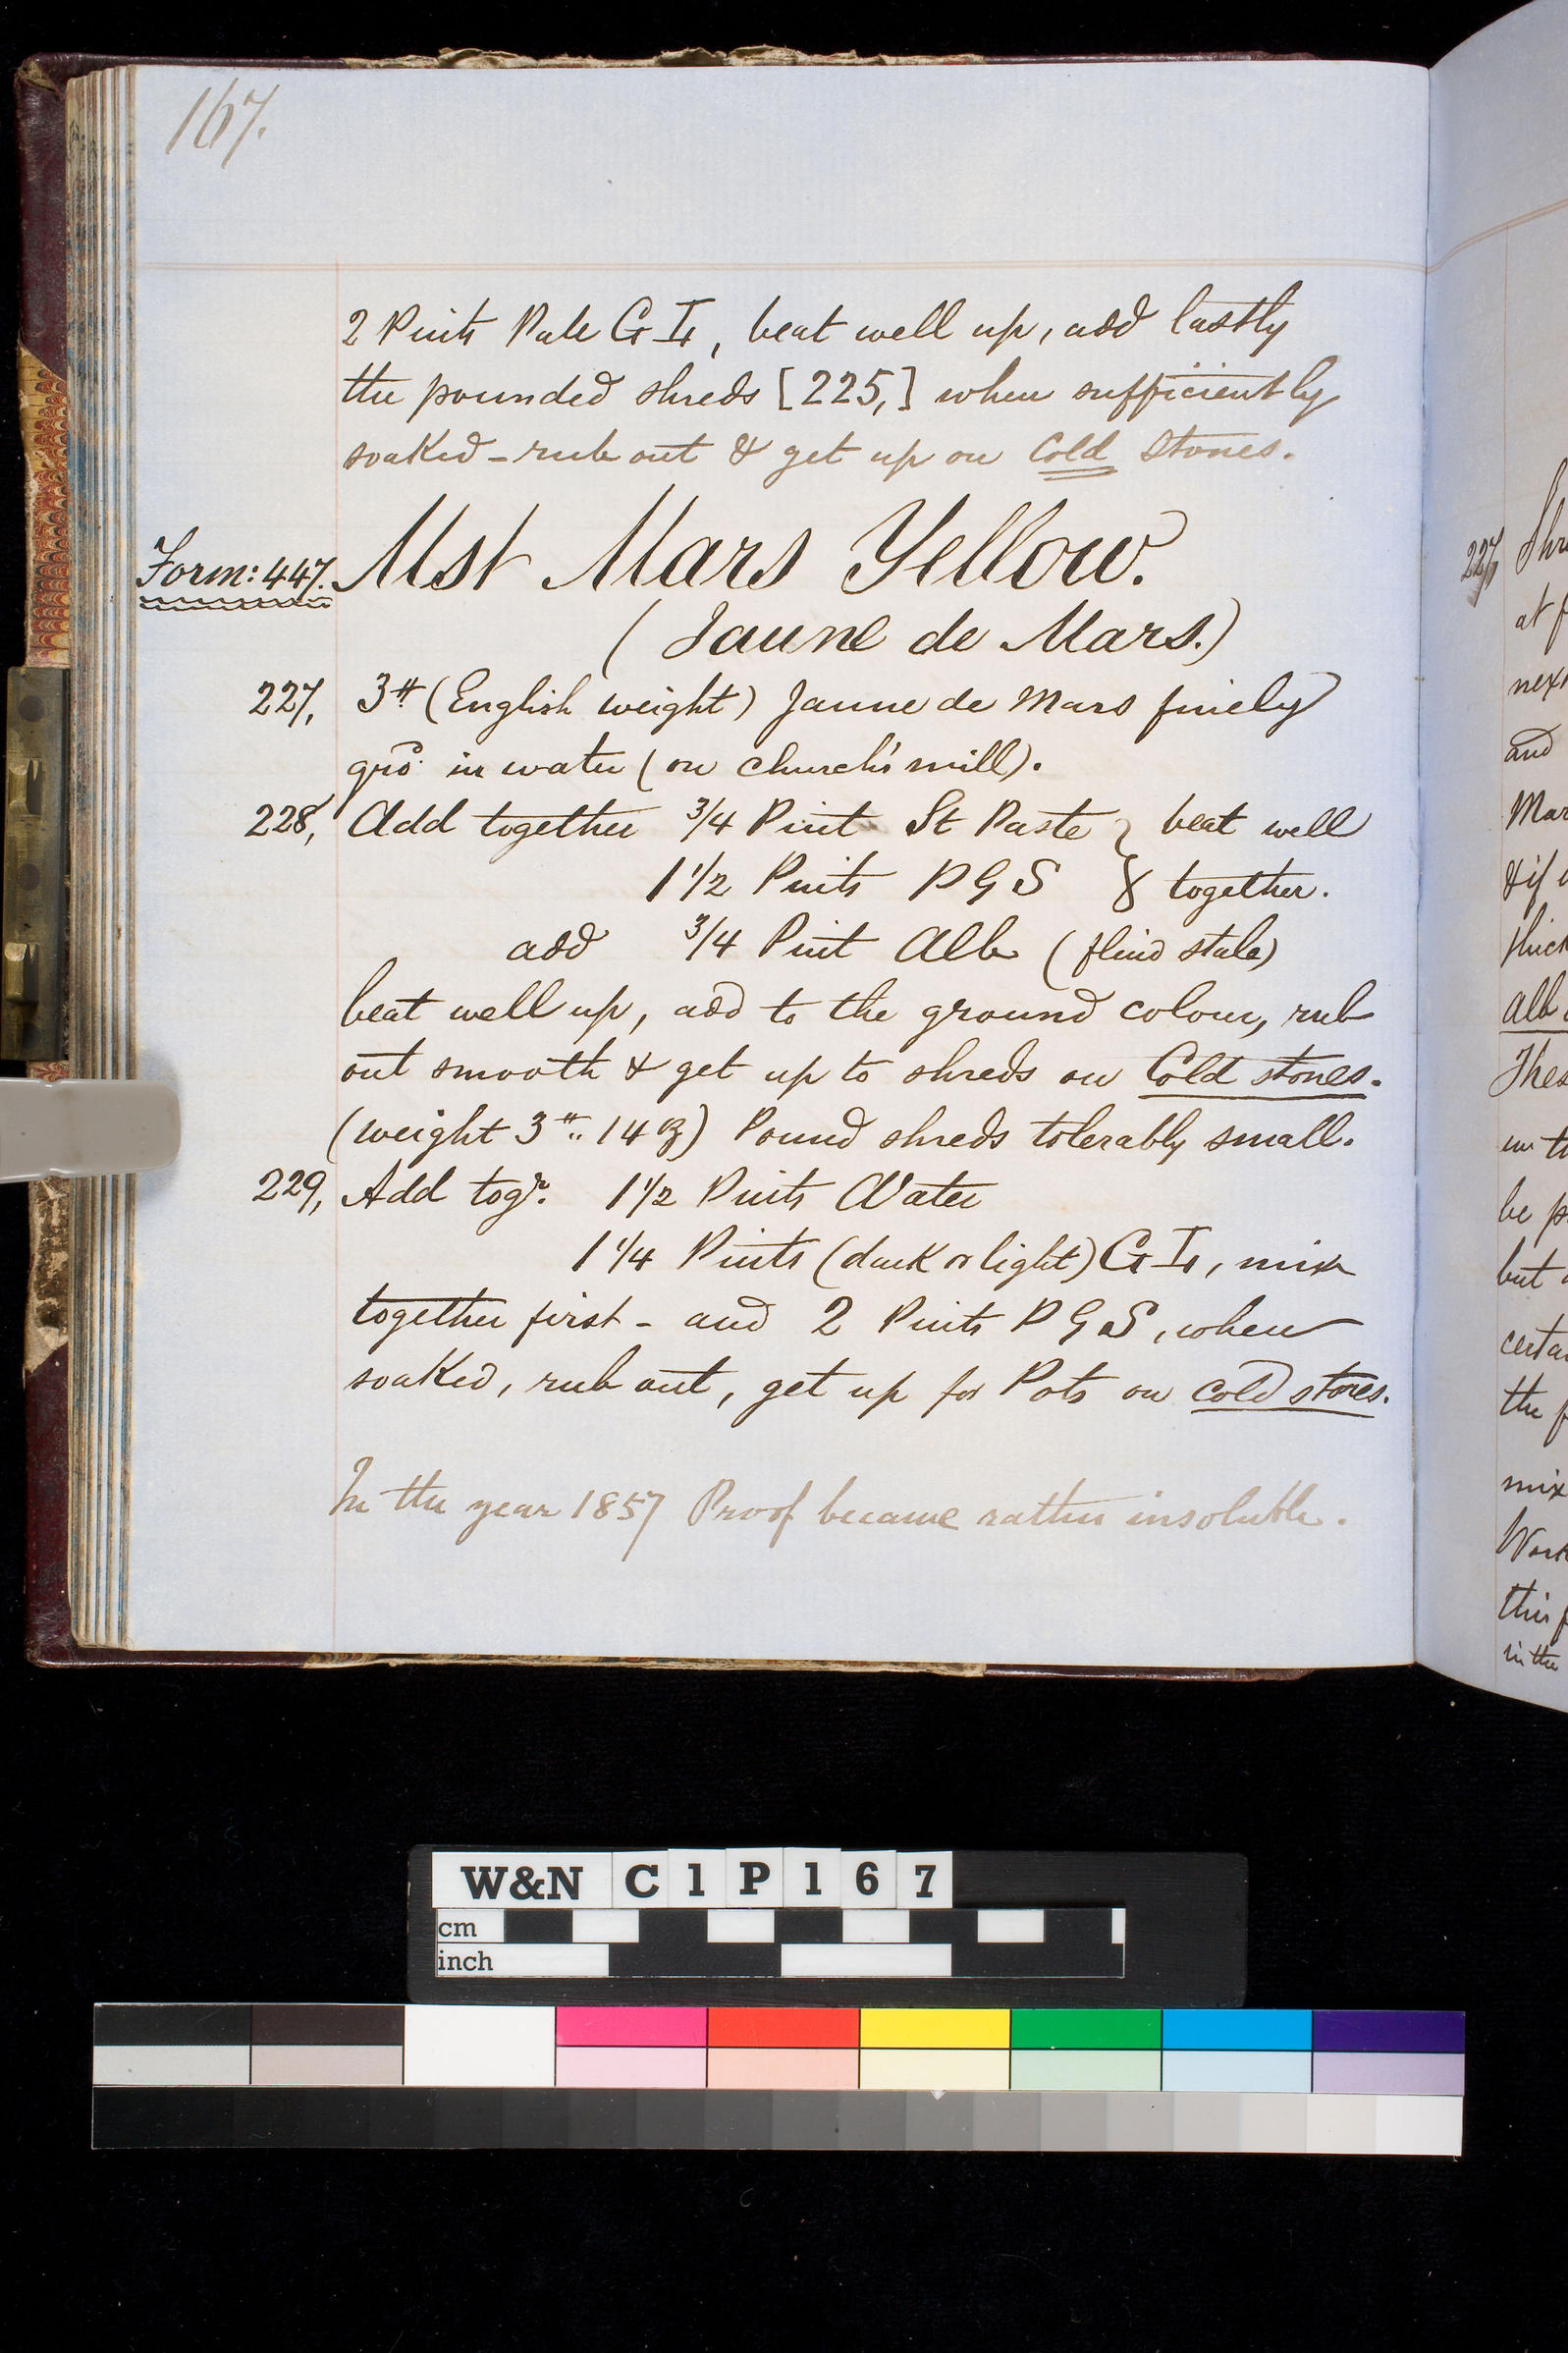 167.
2 Pints Pale G I, beat well up, add lastly
the pounded shreds [225,] when sufficiently
soaked - rub out & get up on Cold Stones.
Form: 447. Mst Mars Yellow.
(Jaune de Mars.)
227, 3 # (English weight) Jaune de Mars finely
gro in water (on Church's mill).
228, Add together 3/4 Pint St Paste } beat well
1 1/2 Pints P G S } together.
add 3/4 Pint Alb (fluid stale)
beat well up, add to the ground colour, rub
out smooth & get up to shreds on Cold stones.
(weight 3 # .. 14 oz) Pound shreds tolerably small.
229, Add togr. 1 1/2 Pints Water
1 1/4 Pints (dark or light) G I, mix
together first - and 2 Pints P G S, when
soaked, rub out, get up for Pots on cold stones.
In the year 1857 Proof became rather insoluble.
227,
at
next
and
& if
thick
alb
be
but
the
mix
this
in the
W&N C1P167
cm
inch